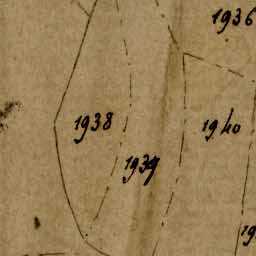 1936
1938
1940
1939